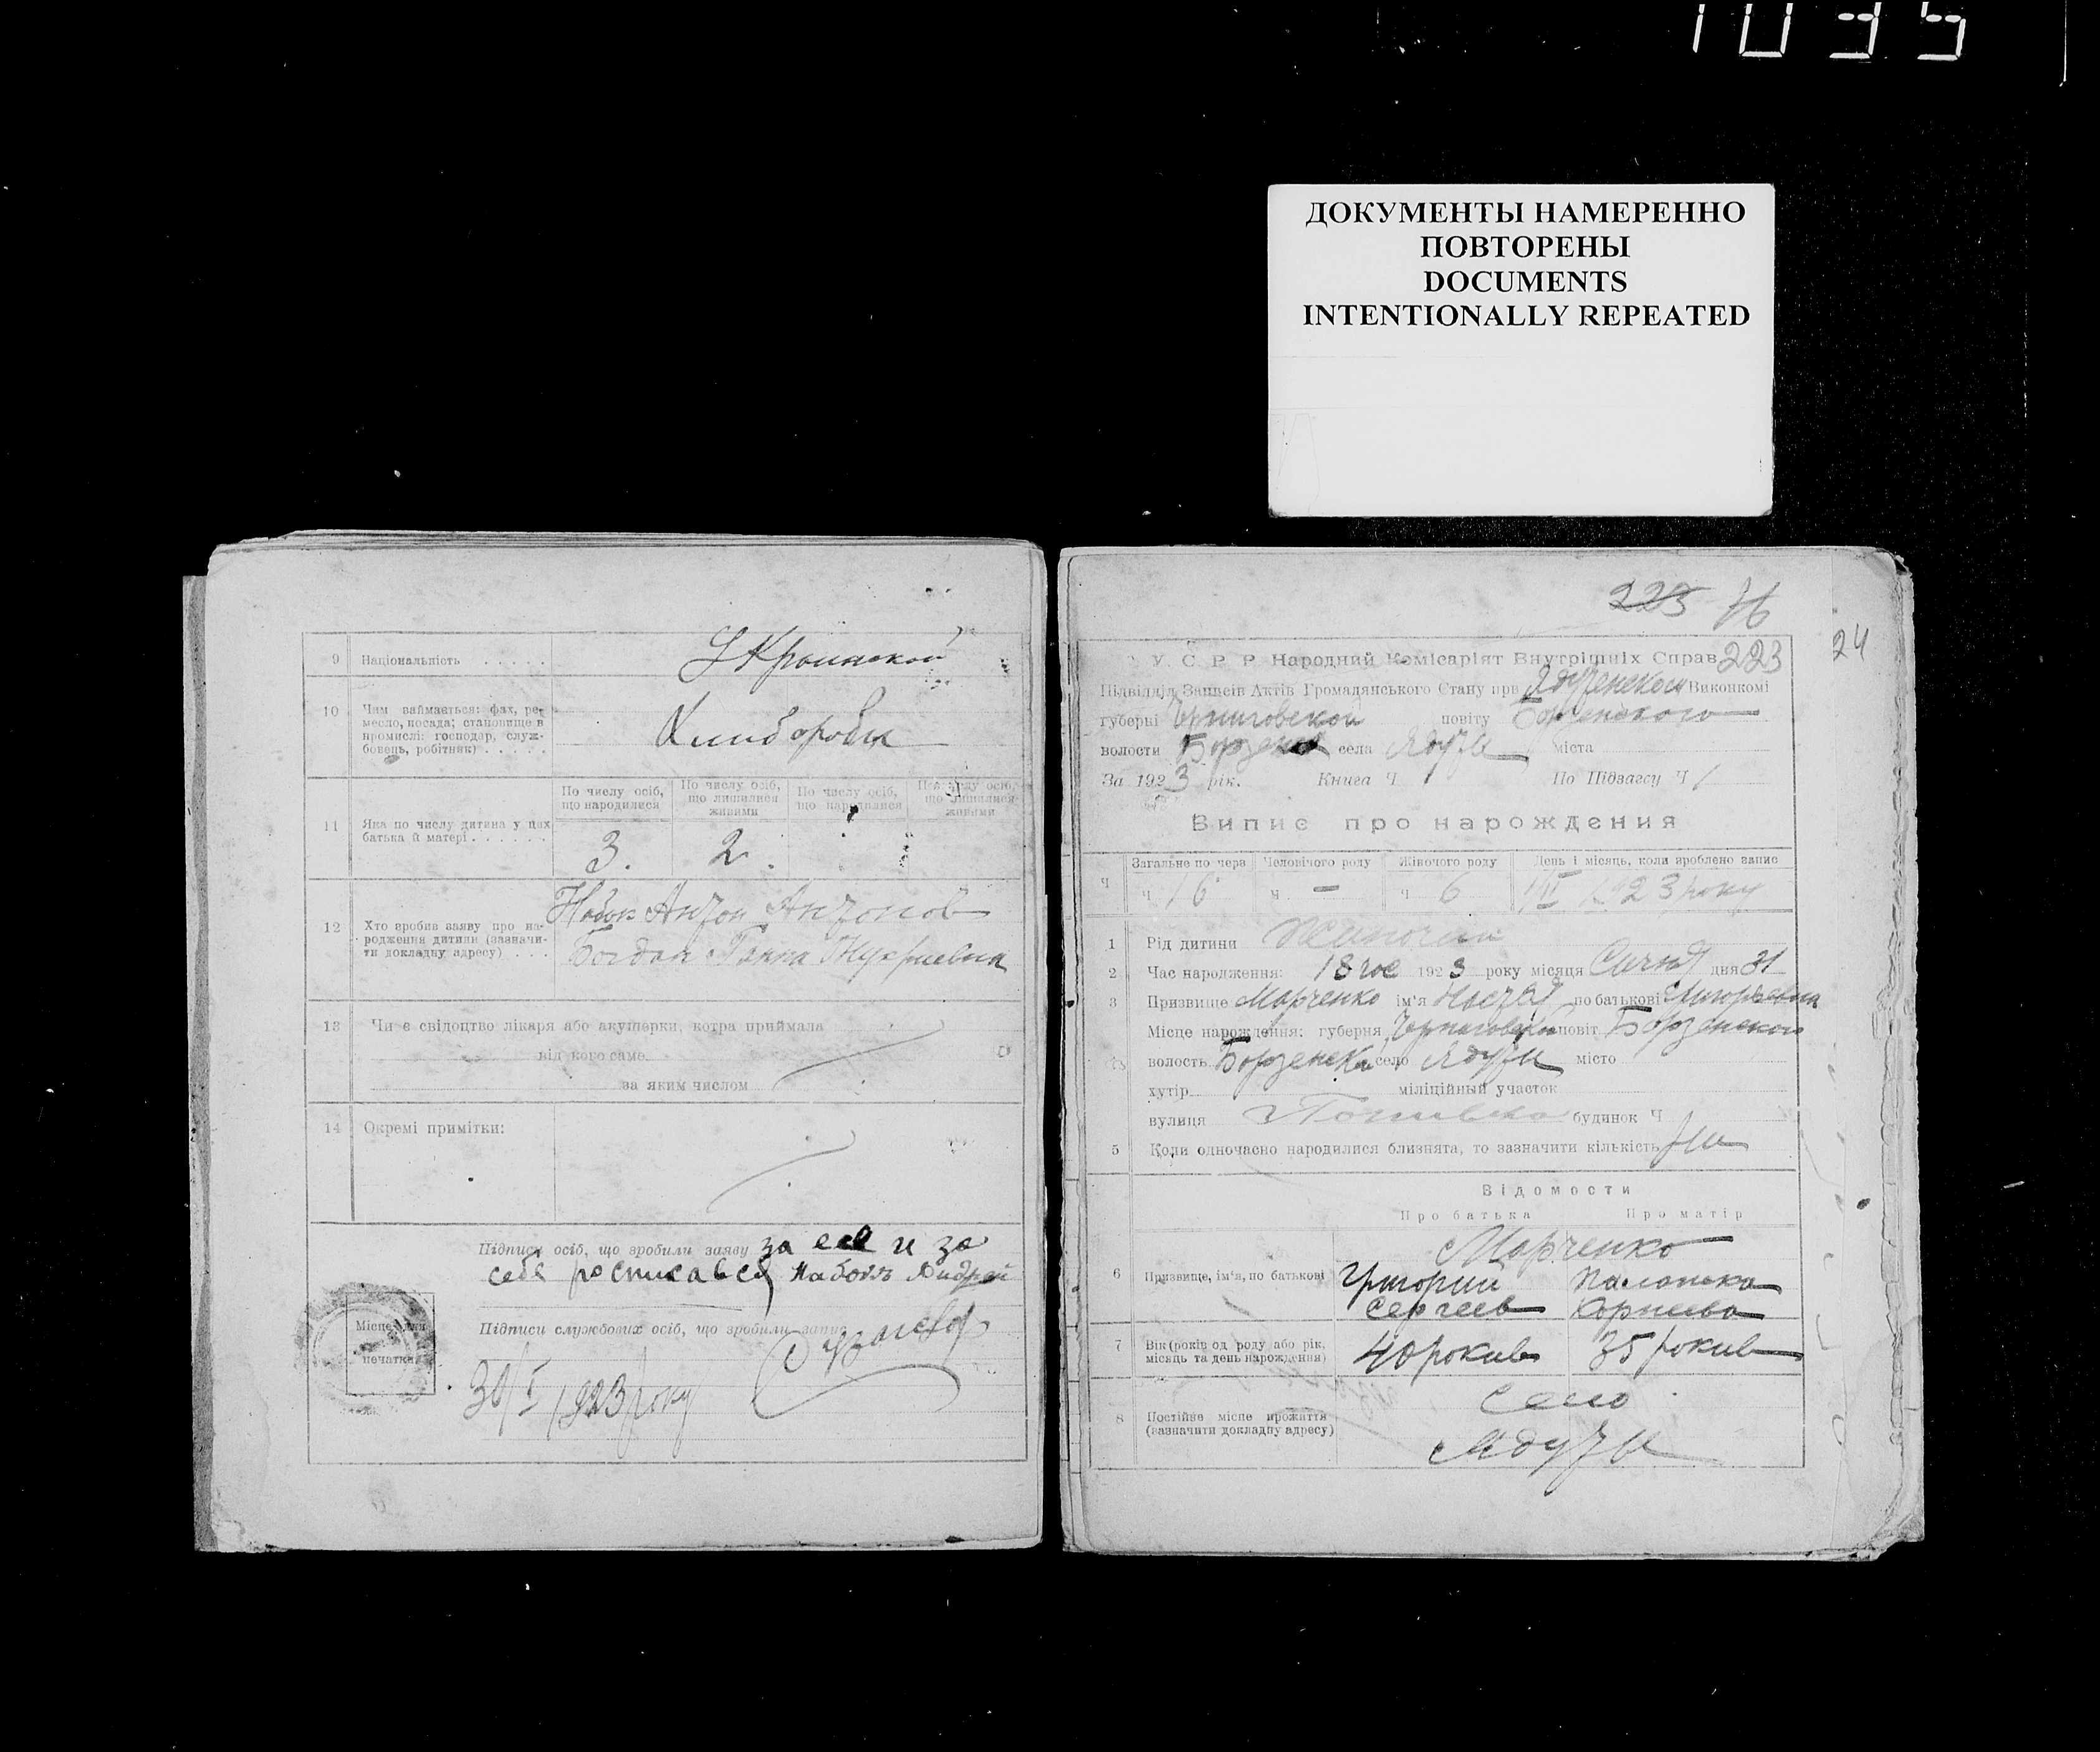 1035
ДОКУМЕНТЫ НАМЕРЕННО
ПОВТОРЕНЫ
DOCUMENTS
INTENTIONALLY REPEATED
9 Національність
10 Чим займається: фах, ре-
месло, посада; становище в
промислі: господар, служ-
бовець, робітник)
Хлиборобы
11 Яка по числу дитина у цих
батька й матері
По числу осіб,
що народилися
По числу осіб,
що лишилися
живими
По числу осіб,
що народилися
По числу осіб,
що лишилися
живими
3. 2.
12 Хто зробив заяву про на-
родження дитини (зазначи-
ти докладну адресу)
Антон Антонов
Богдан Ганна
13 Чи є свідоцтво лікаря або акушерки, котра приймала
від кого саме
за яким числом
14 Окремі примітки:
Підписи осіб, що зробили заяву за ее и за
себя росписався Набокъ Андрей
Підписи службових осіб, що зробили запис
Місце для
печатки
30/I 1923 року
223 76
24
У. С. Р. Р. Народний Комісаріят Внутрішніх Справ 223
Підвідділ Записів Актів Громадянського Стану при Ядутенском Виконкомі
губерні Черниговской повіту Борзенского
волости села Ядуты міста
За 1923 рік. Книга Ч По Підзагсу Ч 1
Випис про народження
Ч Загальне по черв Человічого роду Жіночого роду День і місяць, коли зроблено запис
Ч 16 Ч — Ч 6 1923 року
1 Рід дитини
2 Час народження: 18 1923 року місяця Сичня дня 31
3 Призвище Марченко ім'я по батькові Григорьевна
Місце нарождення: губерня Черниговская повіт Борзенского
волость Борзенская село Ядуты місто
хутір міліційный участок
вулиця Поповка будинок Ч
5 Коли одночасно народилися близнята, то зазначити кількість Ни
Відомости
Про батька Про матір
Марченко
6 Призвище, ім'я, по батькові Григорий Палажка
Сергеев Корнеева
7 Вік (років од роду або рік, місяць та день нарождення) 40 рокив 35 рокив
8 Постійне місце прожиття
(зазначити докладну адресу)
Село
Ядуты